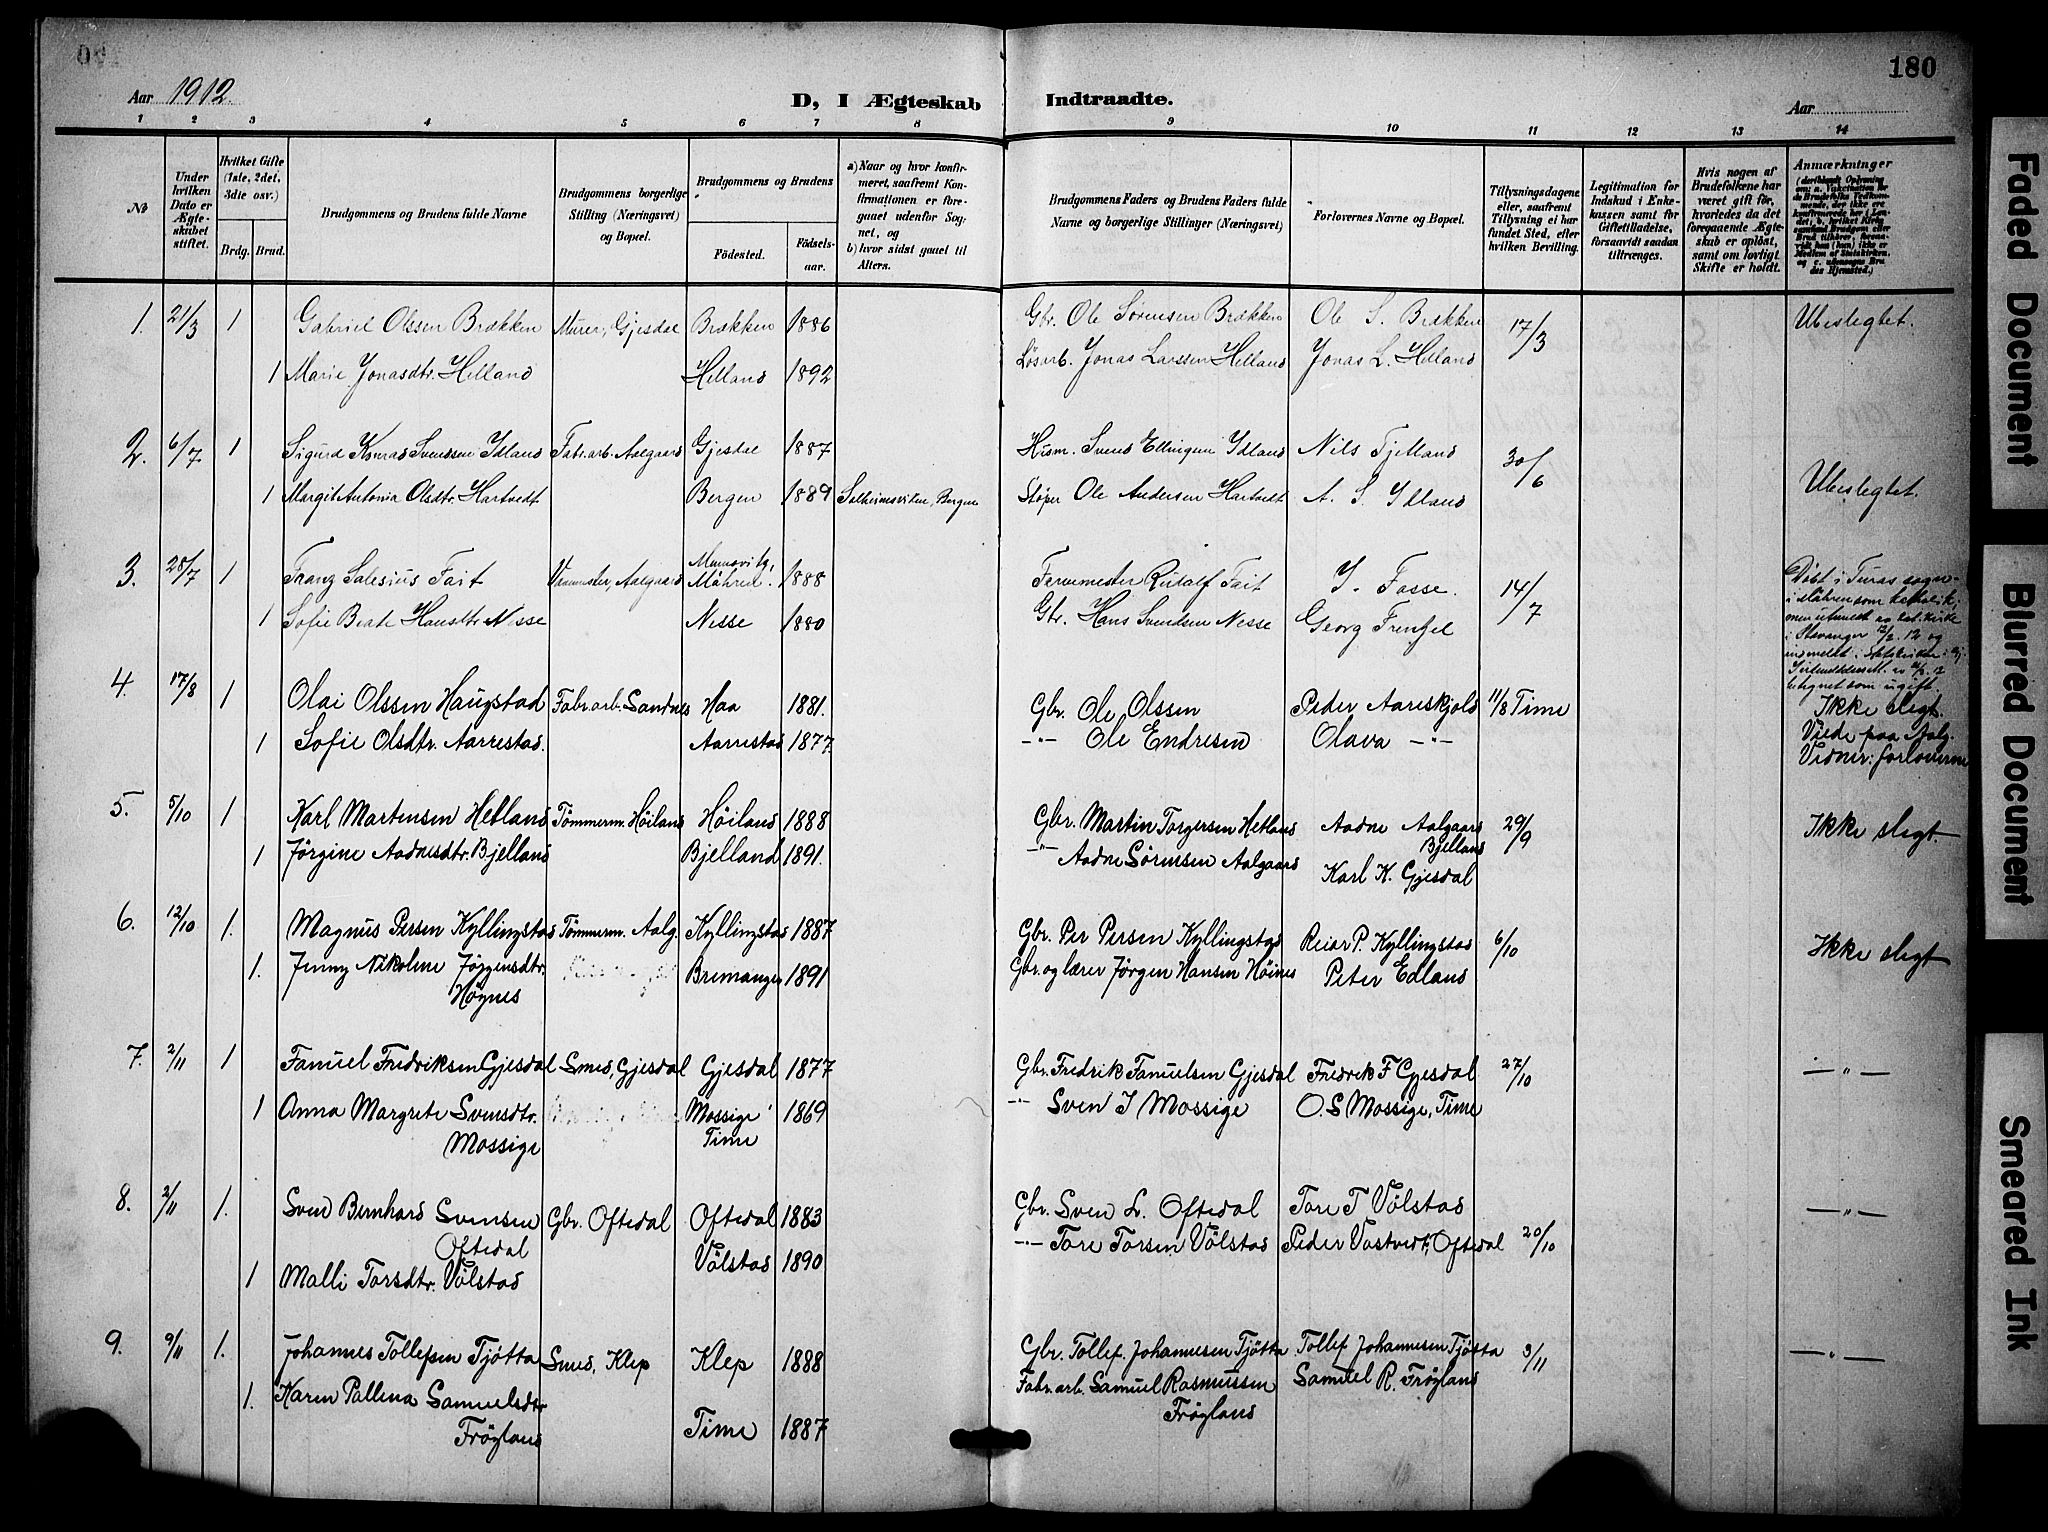 180
Aar 1912.
D, I Ægteskab Indtraadte.
Aar
1 2 3 4 5 6 7 8 9 10 11 12 13 14
No
Under hvilken Dato er Ægteskabet stiftet.
Hvilket Gifte (1ste, 2det, 3die osv.)
Brdg. Brud.
Brudgommens og Brudens fulde Navne
Brudgommens borgerlige Stilling (Næringsvei) og Bopæl.
Brudgommens og Brudens
Fødested.
Fødselsaar.
a) Naar og hvor konfirmeret, saafremt Konfirmationen er foregaaet udenfor Sognet, og
b) hvor sidst gaaet til Alters.
Brudgommens Faders og Brudens Faders fulde Navne og borgerlige Stillinger (Næringsvei)
Forlovernes Navne og Bopæl.
Tillysningsdagene eller, saafremt Tillysning ei har fundet Sted, efter hvilken Bevilling.
Legitimation for Indskud i Enkekassen samt for Giftetilladelse, forsaavidt saadan tiltrænges.
Hvis nogen af Brudefolkene har været gift før, hvorledes da det foregaaende Ægteskab er opløst, samt om lovligt Skifte er holdt.
Anmærkninger
1. 21/3 1 Gabriel Olssen Brækken Murer, Gjesdal Brækken 1886 Gbr. Ole Sørensen Brækken Ole S. Brækken 17/3 Ubeslegtet.
1 Marie Jonasdtr. Helland Helland 1892 Løsarb. Jonas Larssen Helland Jonas L. Helland
2. 6/7 1 Sigurd Konrad Svendsen Idland Fabr.arb. Aalgaard Gjesdal 1887 Husm. Svend Ellingsen Idland Nils Fjelland 30/6
1 Margit Antonia Olsdtr. Hartvedt Bergen 1889 Solheimsviken, Bergen Støper Ole Andersen Hartvedt A. S. Idland Ubeslegtet.
3. 28/7 1 Franz Salesius Fait Aalgaard Mähren. 1888 Farvemester Rudolf Fait I. Fosse. 14/7 Døbt i Turas sogn
1 Sofie Beate Hansdtr. Nesse Nesse 1880 Gbr. Hans Svendsen Nesse Georg Frenzel
i Mähren som katholik; men utmeldt av kat. kirke
i Stavanger 12/2. 12 og
4. 17/8 1 Olai Olssen Haugstad Fabr.arb. Sandnes Haa 1881. Gbr. Ole Olssen Peder Aareskjold 11/8 Time Ikke slegt.
1 Sofie Olsdtr. Aarrestad. Aarrestad 1877. -"- Ole Endresen Olava -"- Viede paa Aalg. Vidner: forloverne
5. 5/10 1 Karl Martensen Hetland Tømmerm. Høiland Høiland 1888 Gbr. Martin Torgersen Hetland Aadne Aalgaard Bjelland 29/9 Ikke slegt.
1 Jørgine Aadnesdtr. Bjelland Bjelland 1891. -"- Aadne Sørensen Aalgaard Karl K. Gjesdal
6. 12/10 1. Magnus Persen Kyllingstad Tømmerm. Aalg. Kyllingstad 1887 Gbr. Per Persen Kyllingstad Reiar P. Kyllingstad 6/10 Ikke slegt
1. Jenny Nikoline Jørgensdtr. Høynes Bremanger 1891 Gbr. og lærer Jørgen Hansen Høines Peter Edland
7. 2/11 1 Fanuel Fredriksen Gjesdal Smed, Gjesdal Gjesdal 1877 Gbr. Fredrik Fanuelsen Gjesdal Fredrik F Gjesdal 27/10 -"-
1 Anna Margrete Svensdtr. Mossige Mossige Time 1869 -"- Sven I Mossige O. S Mossige, Time
8. 2/11 1. Sven Bernhard Svensen Oftedal Gbr. Oftedal Oftedal 1883 Gbr. Sven L. Oftedal Tore T Vølstad -"-
1 Malli Torsdtr. Vølstad Vølstad 1890 -"- Tore Torsen Vølstad Peder Vastvedt, Oftedal 20/10
9. 9/11 1. Johannes Tollefsen Tjøtta Smed, Klep Klep 1888 Gbr. Tollef Johannesen Tjøtta Tollef Johannesen Tjøtta 3/11 -"-
1. Karen Pallena Samuelsdtr Frøyland Time 1887 Fabr.arb. Samuel Rasmussen Frøyland Samuel R. Frøyland
Faded Document
Blurred Document
Smeared Ink